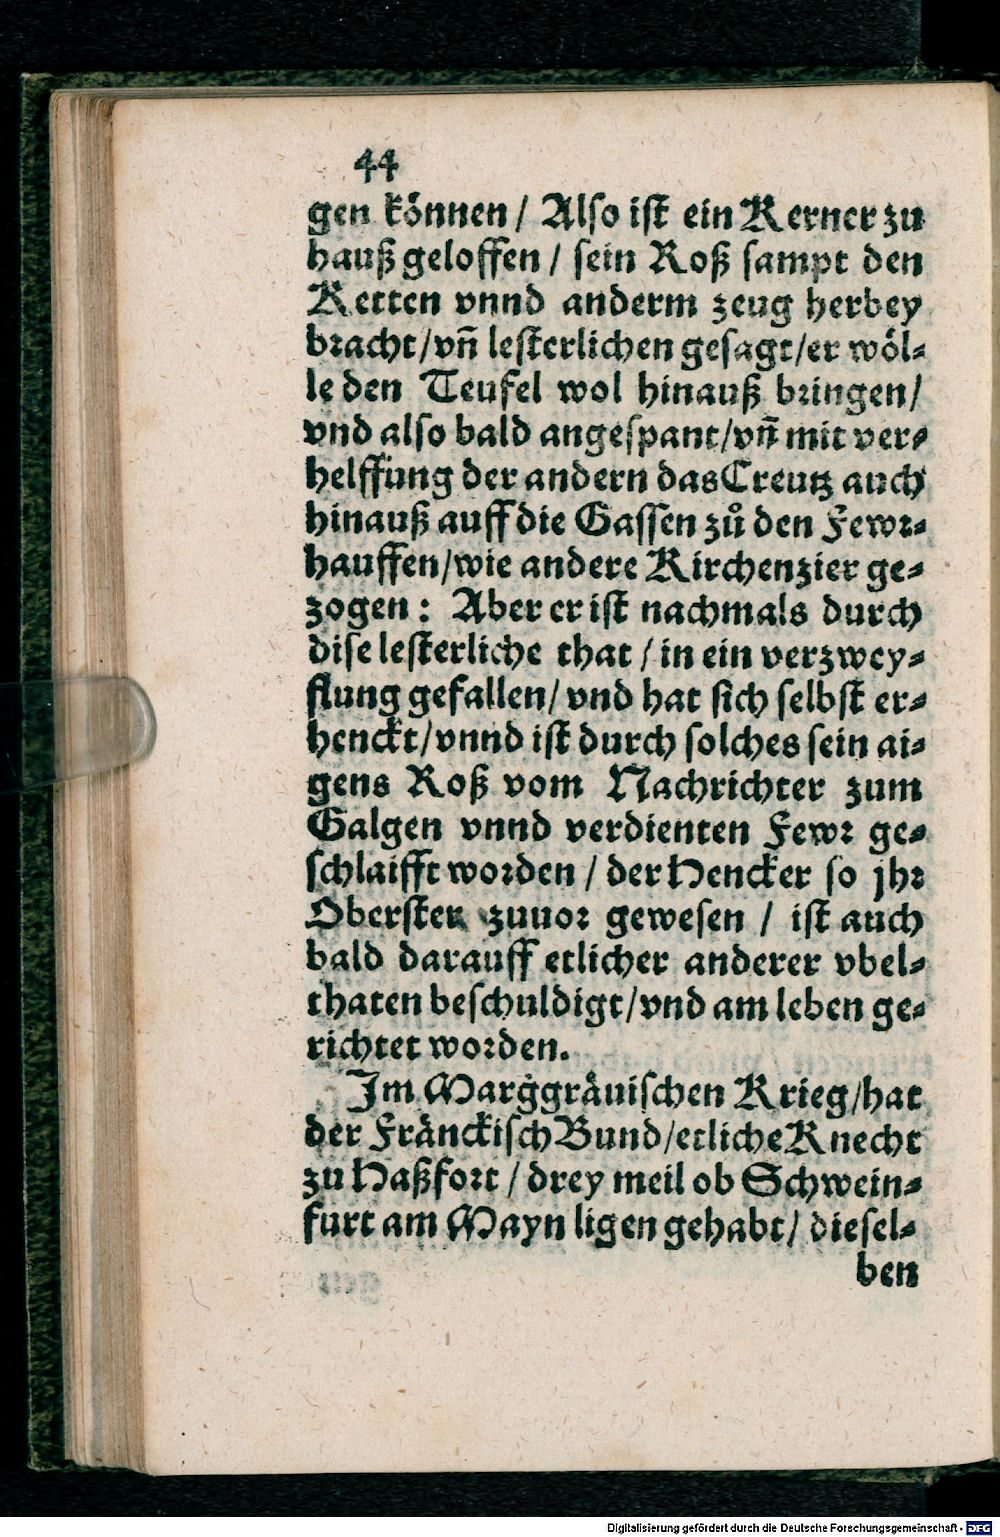 44
gen können / Also ist ein Kerner zu
hauß geloffen / sein Roß sampt den
Ketten vnnd anderm zeug herbey
bracht/vñ lesterlichen gesagt/er wöl⸗
le den Teufel wol hinauß bringen/
vnd also bald angespant/vñ mit ver⸗
helffung der andern das Creutz auch
hinauß auff die Gassen zů den Fewr⸗
hauffen/wie andere Kirchenzier ge⸗
zogen : Aber er ist nachmals durch
dise lesterliche that / in ein verzwey⸗
flung gefallen/ vnd hat sich selbst er⸗
henckt/vnnd ist durch solches sein ai⸗
gens Roß vom Nachrichter zum
Galgen vnnd verdienten Fewr ge⸗
schlaifft worden / der Hencker so jhr
Oberster zuuor gewesen / ist auch
bald darauff etlicher anderer vbel⸗
thaten beschuldigt/vnd am leben ge⸗
richtet worden.
Im Marggräuischen Krieg/hat
der Fränckisch Bund/etliche Knecht
zu Haßfort / drey meil ob Schwein⸗
furt am Mayn ligen gehabt/ diesel⸗
ben
Digitalisierung gefördert durch die Deutsche Forschungsgemeinschaft - DFG